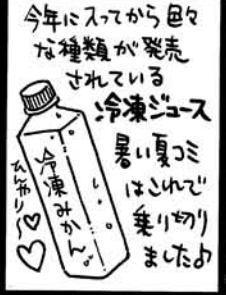 今年に入ってから色々
な種類が発売
されている
冷凍ジュース
暑い夏コミ
はこれで
乗り切り
ました♪
冷凍みかん
ひんやり〜♡♡